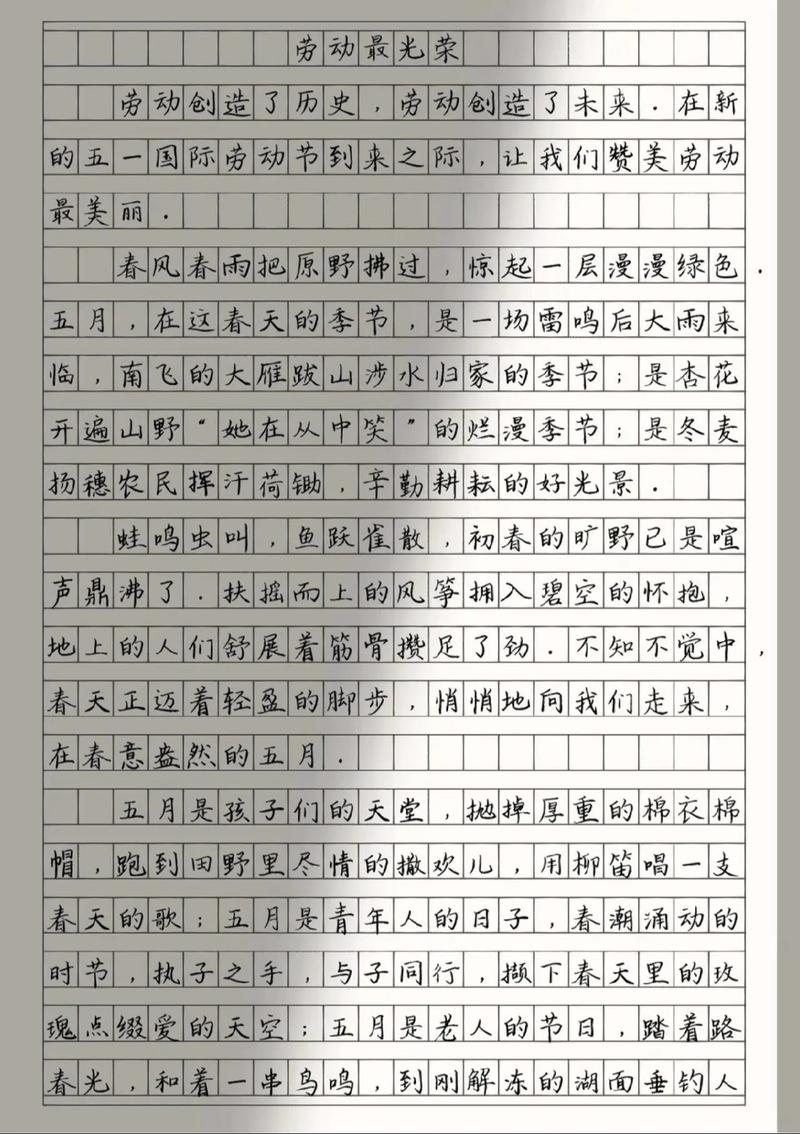 劳动最光荣
劳动创造了历史,劳动创造了未来.在新
的五一国际劳动节到来之际,让我们赞美劳动
最美丽.
春风春雨把原野拂过,惊起一层漫漫绿色.
五月,在这春天的季节,是一场雷鸣后大雨来
临,南飞的大雁跋山涉水归家的季节;是杏花
开遍山野“她在从中笑”的烂漫季节;是冬麦
扬穗农民挥汗荷锄,辛勤耕耘的好光景.
蛙鸣虫叫,鱼跃雀散,初春的旷野已是喧
声鼎沸了.扶摇而上的风筝拥入碧空的怀抱,
地上的人们舒展着筋骨攒足了劲.不知不觉中,
春天正迈着轻盈的脚步,悄悄地向我们走来,
在春意盎然的五月.
五月是孩子们的天堂,抛掉厚重的棉衣棉
帽,跑到田野里尽情的撒欢儿,用柳笛唱一支
春天的歌;五月是青年人的日子,春潮涌动的
时节,执子之手,与子同行,撷下春天里的玫
瑰点缀爱的天空;五月是老人的节日,踏着路
春光,和着一串鸟鸣,到刚解冻的湖面垂钓人